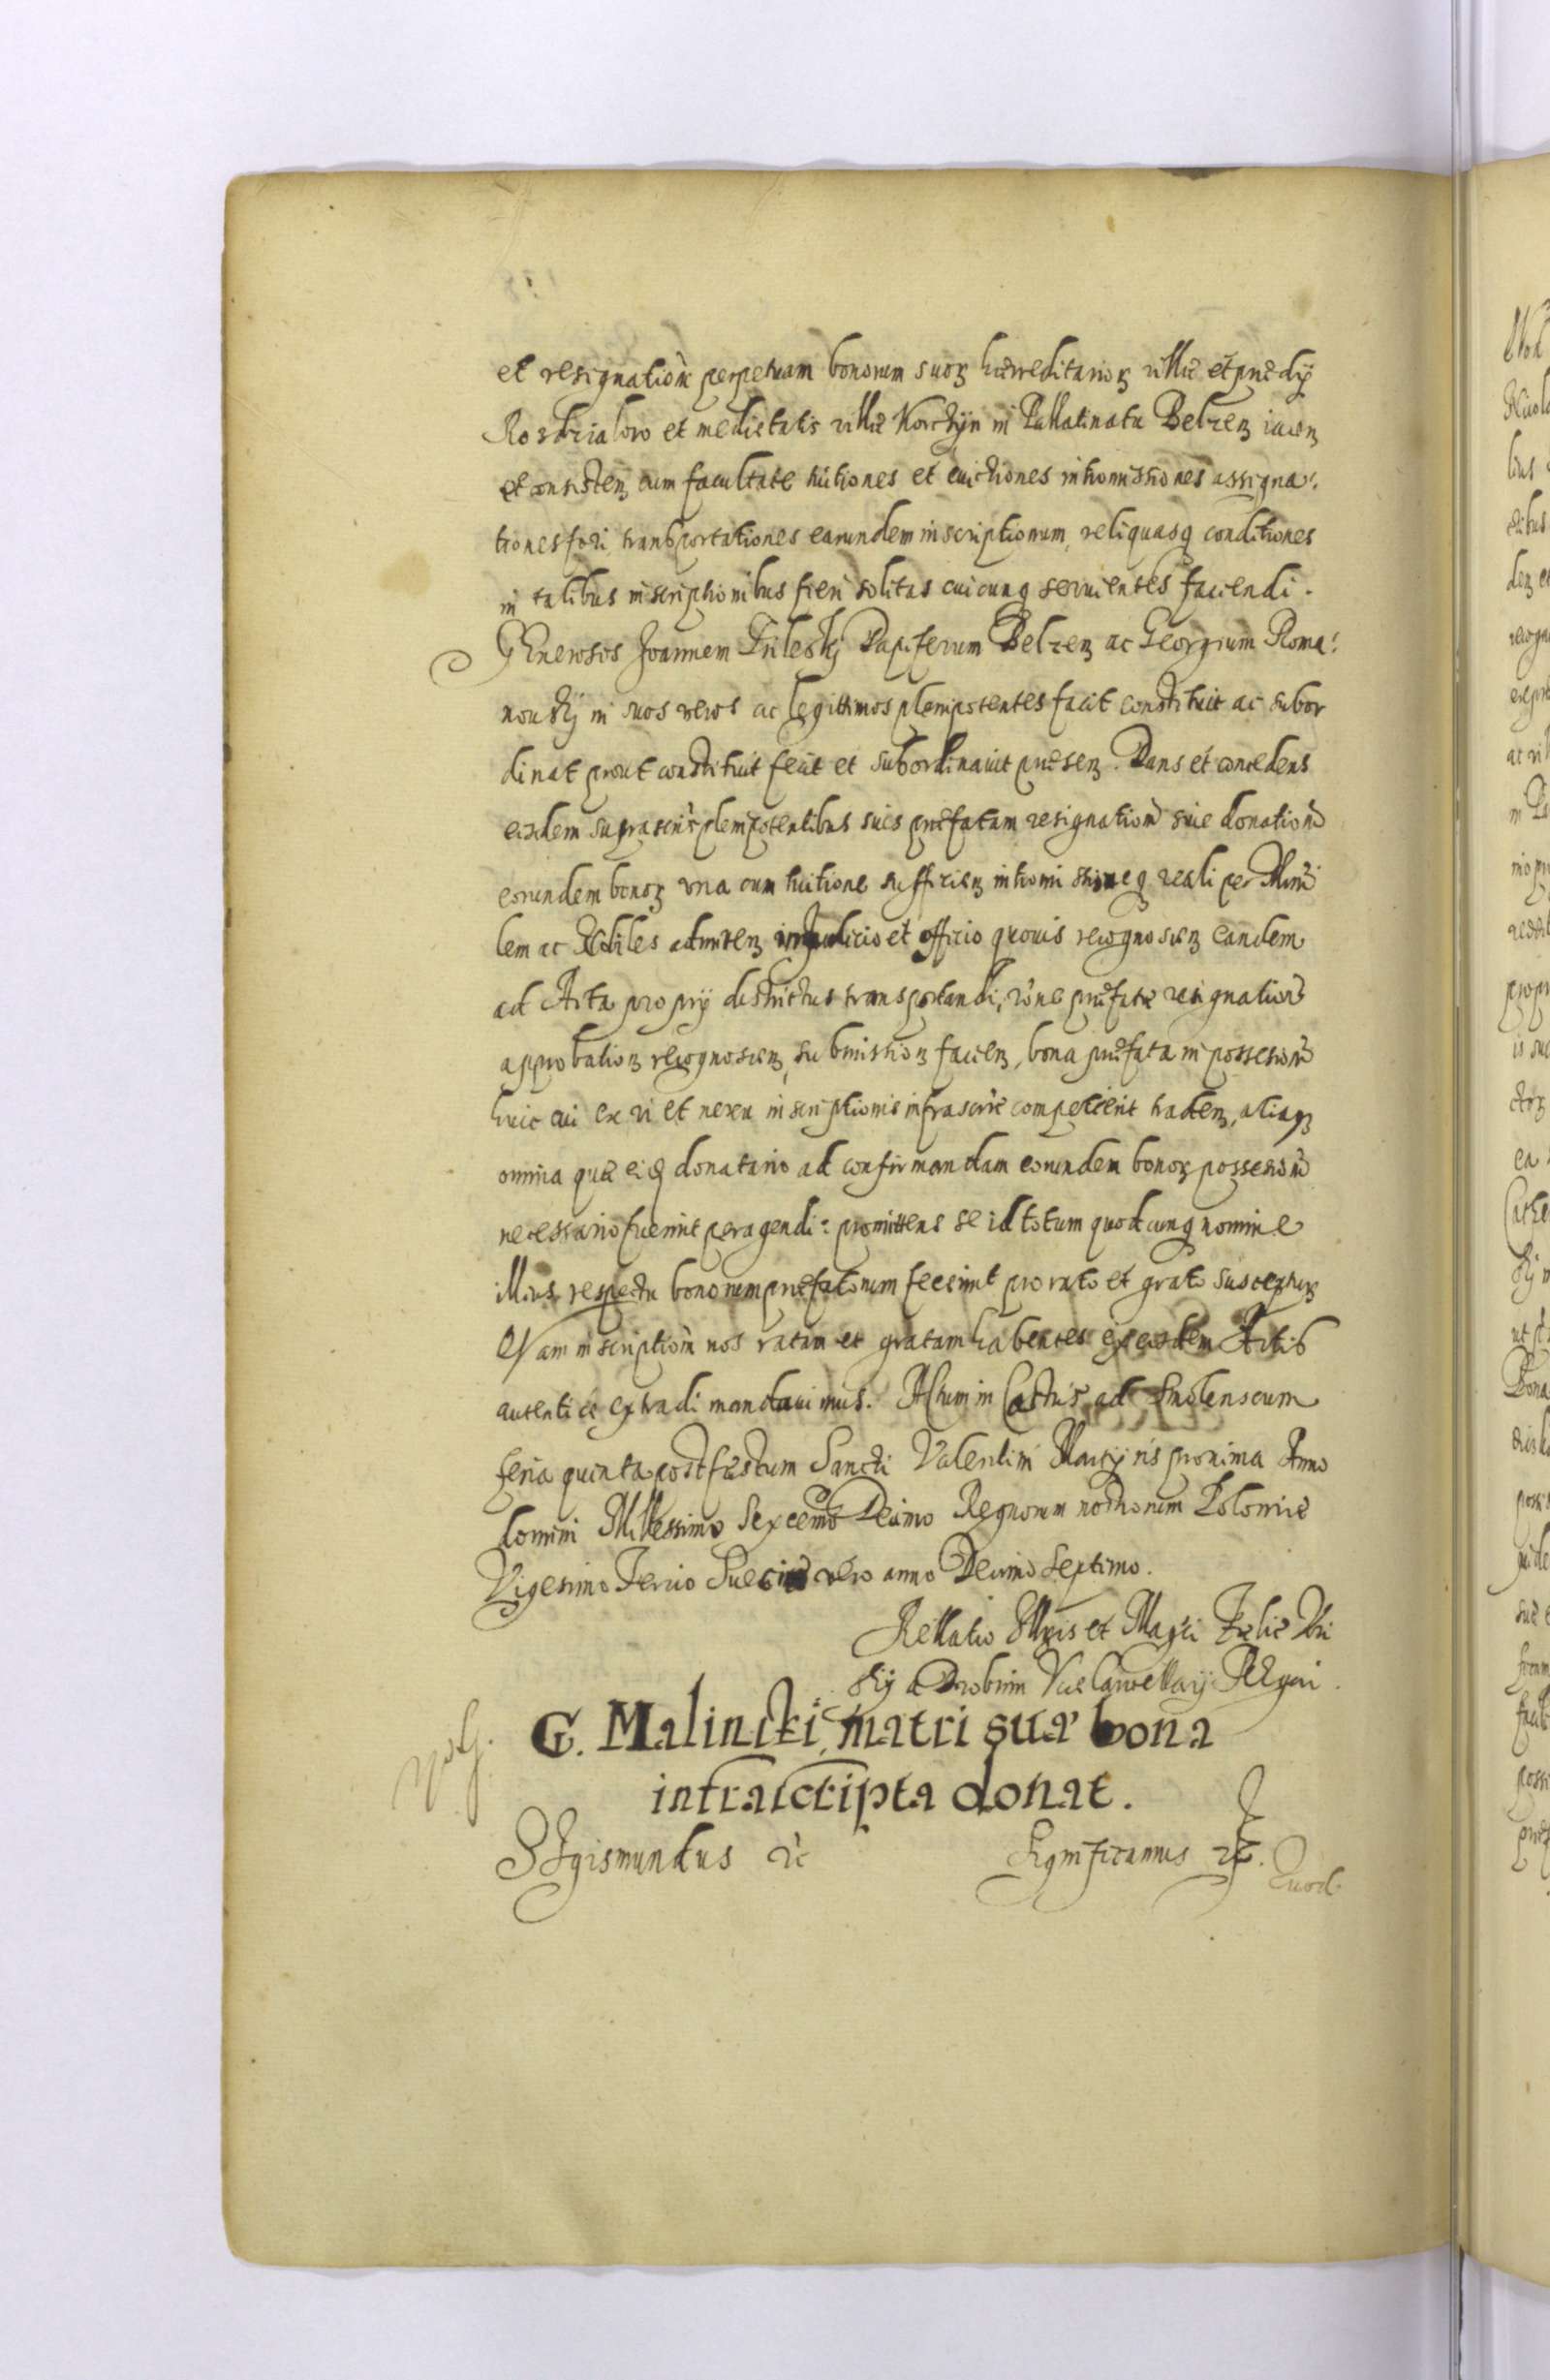 et resignatiom̃ perpetuam bonorum suoꝝ hæreditarioꝝ villæ et prædÿ
et medietatis villæ Korczÿn in Pallatinatu Belzeñ iaceñ
et consisteñ cum facultate tuitiones et euictiones intromissiones assigna:
tiones fori, transportationes earundem inscriptionum, reliquasqꝫ conditiones
in talibus inscriptionibus fieri solitas cuicunqꝫ seruientes faciendi.
GEnerosos Joannem Dapiferum Belzeñ ac Georgium Roma:
nouskÿ in suos veros ac legittimos plenipotentes facit constituit ac subor
dinat prout constituit fecit et subordinauit præseñ. Dans et concedens
eisdem suprascrip̃ plenipotentibus suis præfatam resignationẽ siue donationẽ
eorundem bonoꝝ vna cum tuitione sufficieñ intromissioneqꝫ reali per Mini
lem ac Nobiles admitteñ in Judicio et officio quouis recognosceñ eandem
ad Acta proprÿ districtus transportandi, rõne præfatæ resignationẽ
approbationꝫ recognosceñ, submissionꝫ facieñ, bona præfata in possessionẽ
huic cui ex vi et nexu inscriptionis infrascrip̃ competierit tradeñ, aliaqꝫ
omnia quæ eiqꝫ donatario ad confirmandam eorundem bonoꝝ possessionẽ
necessario fuerint peragendi: promittens se id totum quodcunqꝫ nomine
illius respectu bonorum præfatorum fecerint pro rato et grato susceptuꝝ
Q/am inscriptiom̃ nos ratam et gratam habentes ex eisdem Actis
autenticè extradi mandauimus. Actum in Castris ad Smolenscum
feria quinta post festum Sancti Valentini Martyris proxima Anno
domini Millessimo Sexcentmo Decimo Regnorum nostrorum Poloniæ
Vigesimo Tercio Sueciæ vero anno Decimo Septimo.
Rellatio Illris et Magci Felicis Kri
skÿ a Drobnin Vice Cancellarÿ Regni.
G. Malincki matri suæ bona
infrascripta donat.
SIgismundus &c Significamus &c. Quod